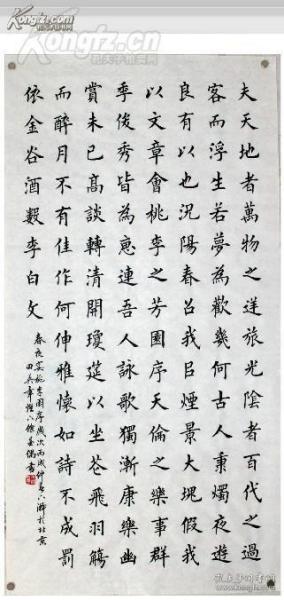 Kongfz.cn
夫天地者萬物之逆旅光陰者百代之過
客而浮生若夢為歡幾何古人秉燭夜遊
良有以也況陽春召我㠯煙景大塊假我
以文章會桃李之芳園序天倫之樂事群
季俊秀皆為惠連吾人詠歌獨漸康樂幽
賞未已高談轉清開瓊筵以坐花飛羽觴
而醉月不有佳作何伸雅懷如詩不成罰
依金谷酒數李白文
春夜宴桃李園序歲次丙戌仲夏六於北京
田英章書